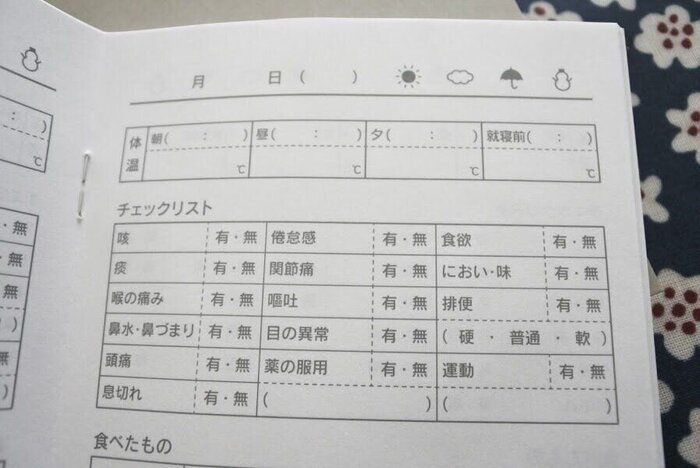 月 日( )
体温 朝( : ) 昼( : ) 夕( : ) 就寝前( : )
℃ ℃ ℃ ℃
チェックリスト
咳 有・無 倦怠感 有・無 食欲 有・無
痰 有・無 関節痛 有・無 におい・味 有・無
喉の痛み 有・無 嘔吐 有・無 排便 有・無
鼻水・鼻づまり 有・無 目の異常 有・無 ( 硬 ・ 普通 ・ 軟 )
頭痛 有・無 薬の服用 有・無 運動 有・無
息切れ 有・無 ( ) ( )
食べたもの
) 
℃
・無
・無
無
)
無
)